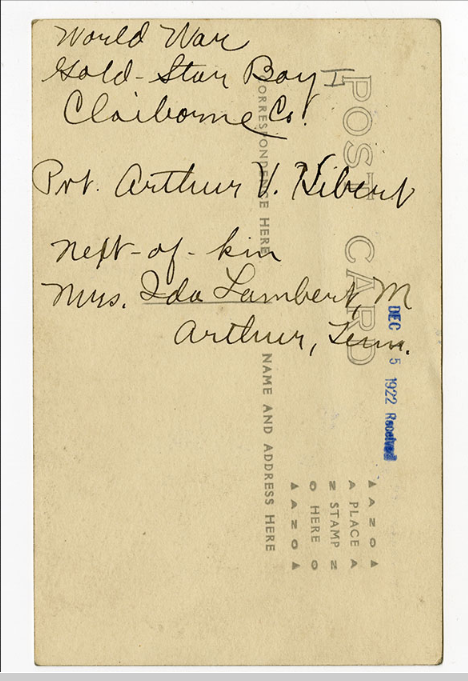 World War
Gold-Star Boy I
Claiborne Co.
Pvt. Arthur V. Hibert
Next-of-kin
Mrs. Ida Lambert, M
Arthur, Tenn.
POST CARD
CORRESPONDENCE HERE
NAME AND ADDRESS HERE
DEC 5 1922 Received
▲ A N O ▲
A PLACE A
Z STAMP Z
O HERE O
▲ A N O ▲